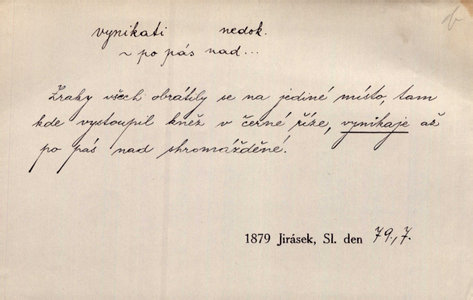 vynikati nedok.
~ po pás nad...
Zraky všech obrátily se na jediné místo, tam
kde vystoupil kněž v černé říze, vynikaje až
po pás nad shromážděné.
1879 Jirásek, Sl. den 79,7.